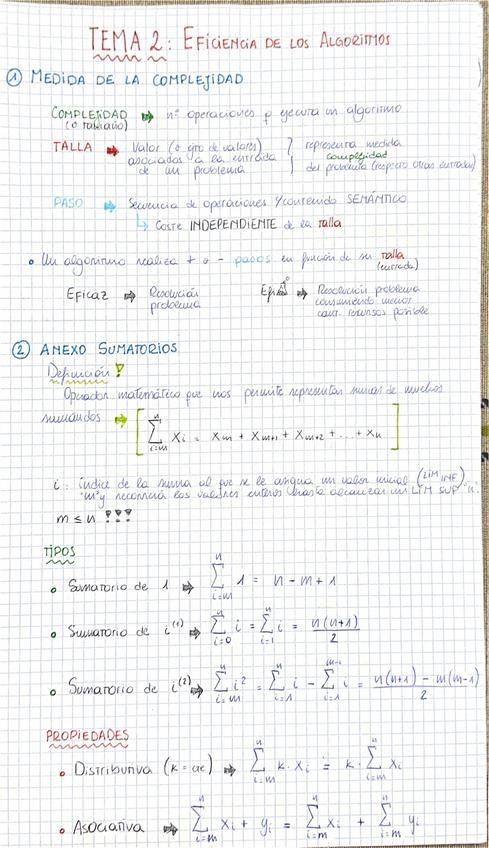 TEMA 2: EFICIENCIA DE LOS ALGORITMOS
① MEDIDA DE LA COMPLEJIDAD
COMPLEJIDAD ⇒ nº operaciones q ejecuta un algoritmo
(o tamaño)
TALLA ⇒ Valor (o cjto de valores) } representa medida
asociados a la entrada complejidad
de un problema del problema (respecto otras entradas)
PASO ⇒ Secuencia de operaciones y/contenido SEMÁNTICO
↳ Coste INDEPENDIENTE de la Talla
• Un algoritmo realiza + o - pasos en función de su talla
(entrada)
EFICAZ ⇒ Resolución problema
⇒ Resolución problema consumiendo menor cant. recursos posible
② ANEXO SUMATORIOS
Definición !
Operador matemático que nos permite representar sumas de muchos
sumandos ⇒ [ ∑ᵢ₌ₘⁿ Xi = Xm + Xm+1 + Xm+2 + ... + Xn ]
i : índice de la suma al que se le asigna un valor inicial (LÍM INF)
"m" y recorrerá los valores enteros hasta alcanzar un LÍM SUP "n".
m ≤ n !!!
TIPOS
• Sumatorio de 1 ⇒ ∑ᵢ₌ₘⁿ 1 = n - m + 1
• Sumatorio de i⁽¹⁾ ⇒ ∑ᵢ₌₀ⁿ i = ∑ᵢ₌₁ⁿ i = n(n+1) / 2
• Sumatorio de i⁽²⁾ ⇒ ∑ᵢ₌ₘⁿ i² = ∑ᵢ₌₁ⁿ i - ∑ᵢ₌₁ᵐ⁻¹ i = n(n+1) - m(m-1) / 2
PROPIEDADES
• Distributiva (k = cte) ⇒ ∑ᵢ₌ₘⁿ k · Xi = k · ∑ᵢ₌ₘⁿ Xi
• Asociativa ⇒ ∑ᵢ₌ₘⁿ Xi + yi = ∑ᵢ₌ₘⁿ Xi + ∑ᵢ₌ₘⁿ yi